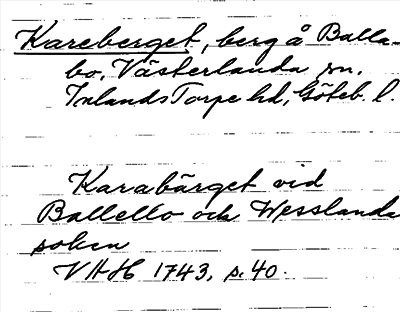 Kareberget, berg å Balla-
bo, Västerlanda sn.
Inlands Torpe hd, Göteb. l.
Karabärget vid
Ballebo och Wesslanda
soken
VHH 1743, s. 40.